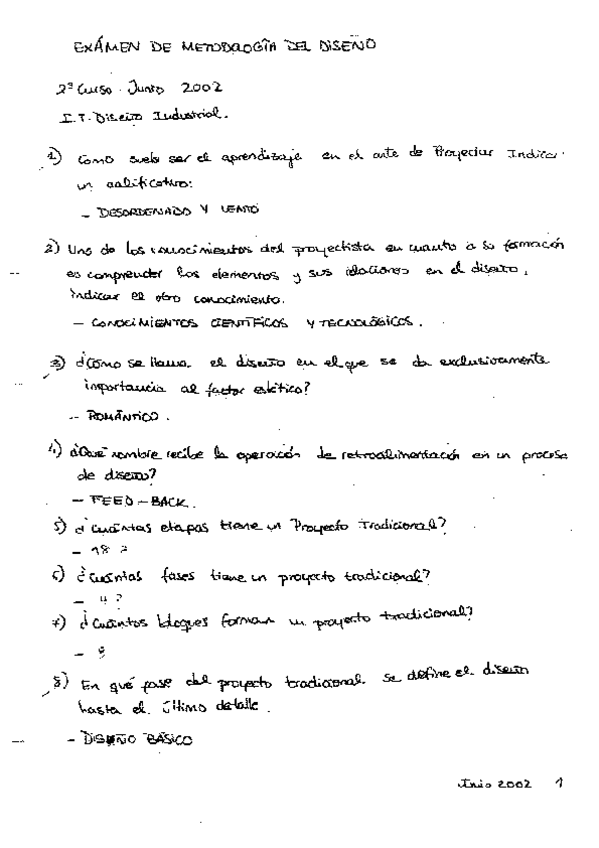 EXÁMEN DE METODOLOGÍA DEL DISEÑO
2º Curso. Junio 2002
I.T. Diseño Industrial.
1) Como suele ser el aprendizaje en el arte de Proyectar Indicar
un calificativo:
- DESORDENADO Y LENTO
2) Uno de los conocimientos del proyectista en cuanto a su formación
es comprender los elementos y sus relaciones en el diseño,
indicar el otro conocimiento.
- CONOCIMIENTOS CIENTÍFICOS Y TECNOLÓGICOS.
3) ¿Cómo se llama el diseño en el que se da exclusivamente
importancia al factor estético?
- ROMÁNTICO.
4) ¿Qué nombre recibe la operación de retroalimentación en un proceso
de diseño?
- FEED-BACK.
5) ¿Cuántas etapas tiene un Proyecto Tradicional?
- 18 ?
6) ¿Cuántas fases tiene un proyecto tradicional?
- 4 ?
7) ¿Cuántos bloques forman un proyecto tradicional?
-
8) En qué fase del proyecto tradicional se define el diseño
hasta el último detalle.
- DISEÑO BÁSICO
Junio 2002 1